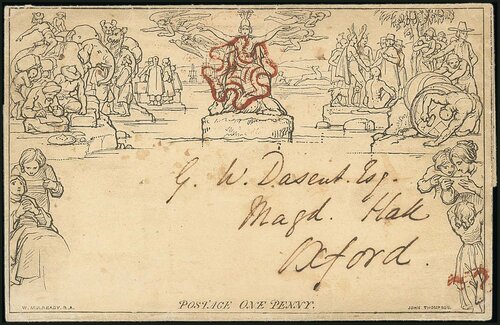 G. W. Dasent. Esq.
Magd. Hall
Oxford.
POSTAGE ONE PENNY.
W. MULREADY. R.A.
JOHN THOMPSON.